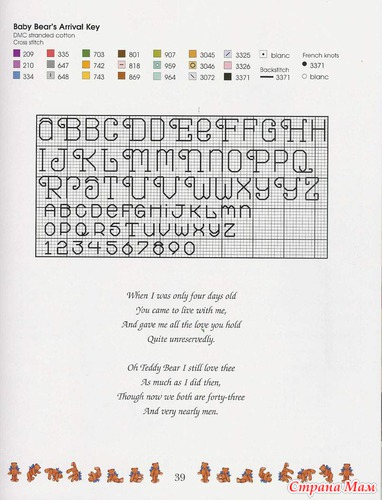 Baby Bear's Arrival Key
DMC stranded cotton
Cross stitch
209 335 703 801 907 3045 3325 blanc French knots
210 647 742 818 959 3046 3326 Backstitch 3371
334 648 743 964 3072 3371 3371 blanc
A B B C C D D E E F F G G H H
I J K L M M N N O P P Q
R R S T U V V W W X Y Y Z
A B C D E F G H I J K L M N
O P Q R S T U V W X Y Z
1 2 3 4 5 6 7 8 9 0
When I was only four days old
You came to live with me,
And gave me all the love you hold
Quite unreservedly.
Oh Teddy Bear I still love thee
As much as I did then,
Though now we both are forty-three
And very nearly men.
39
Страна Мам